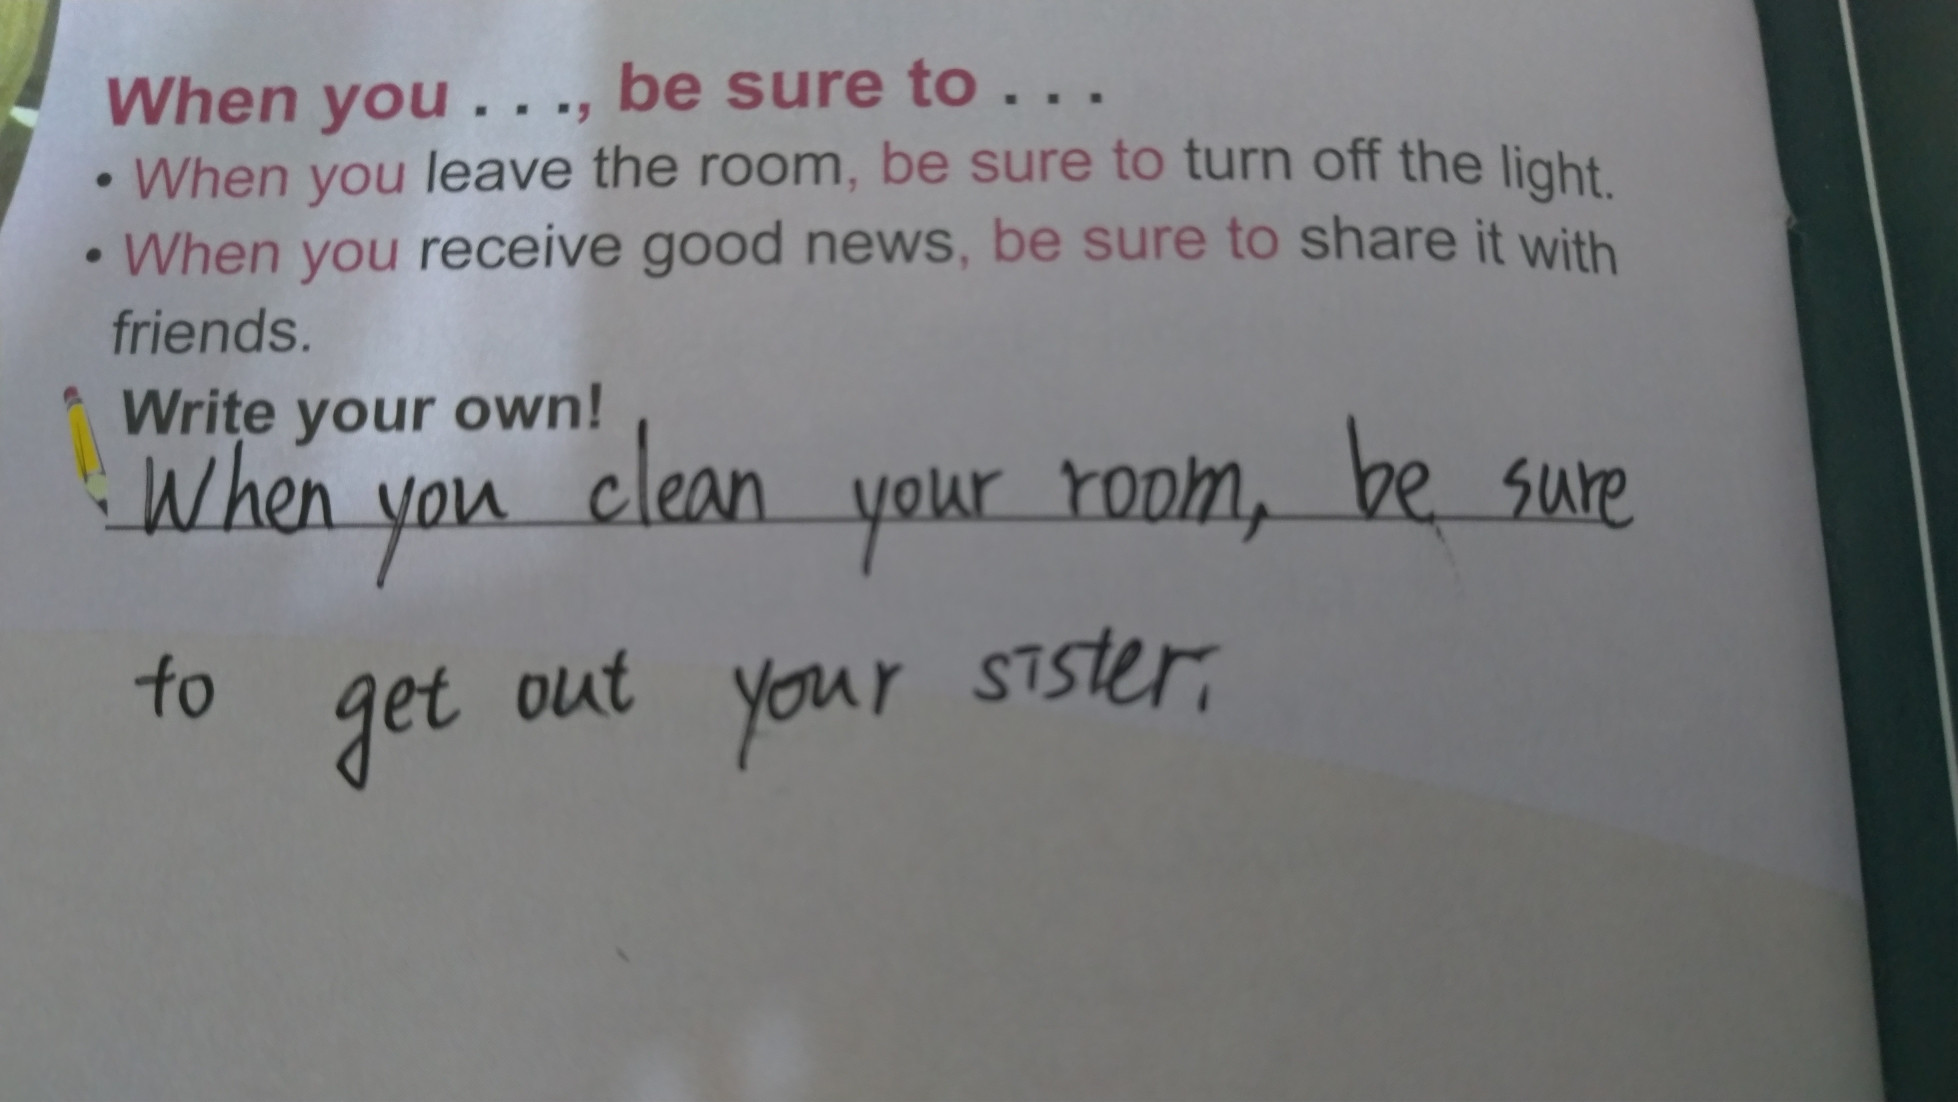 When you . . ., be sure to . . .
• When you leave the room, be sure to turn off the light.
• When you receive good news, be sure to share it with
friends.
Write your own!
When you clean your room, be sure
to get out your sister.